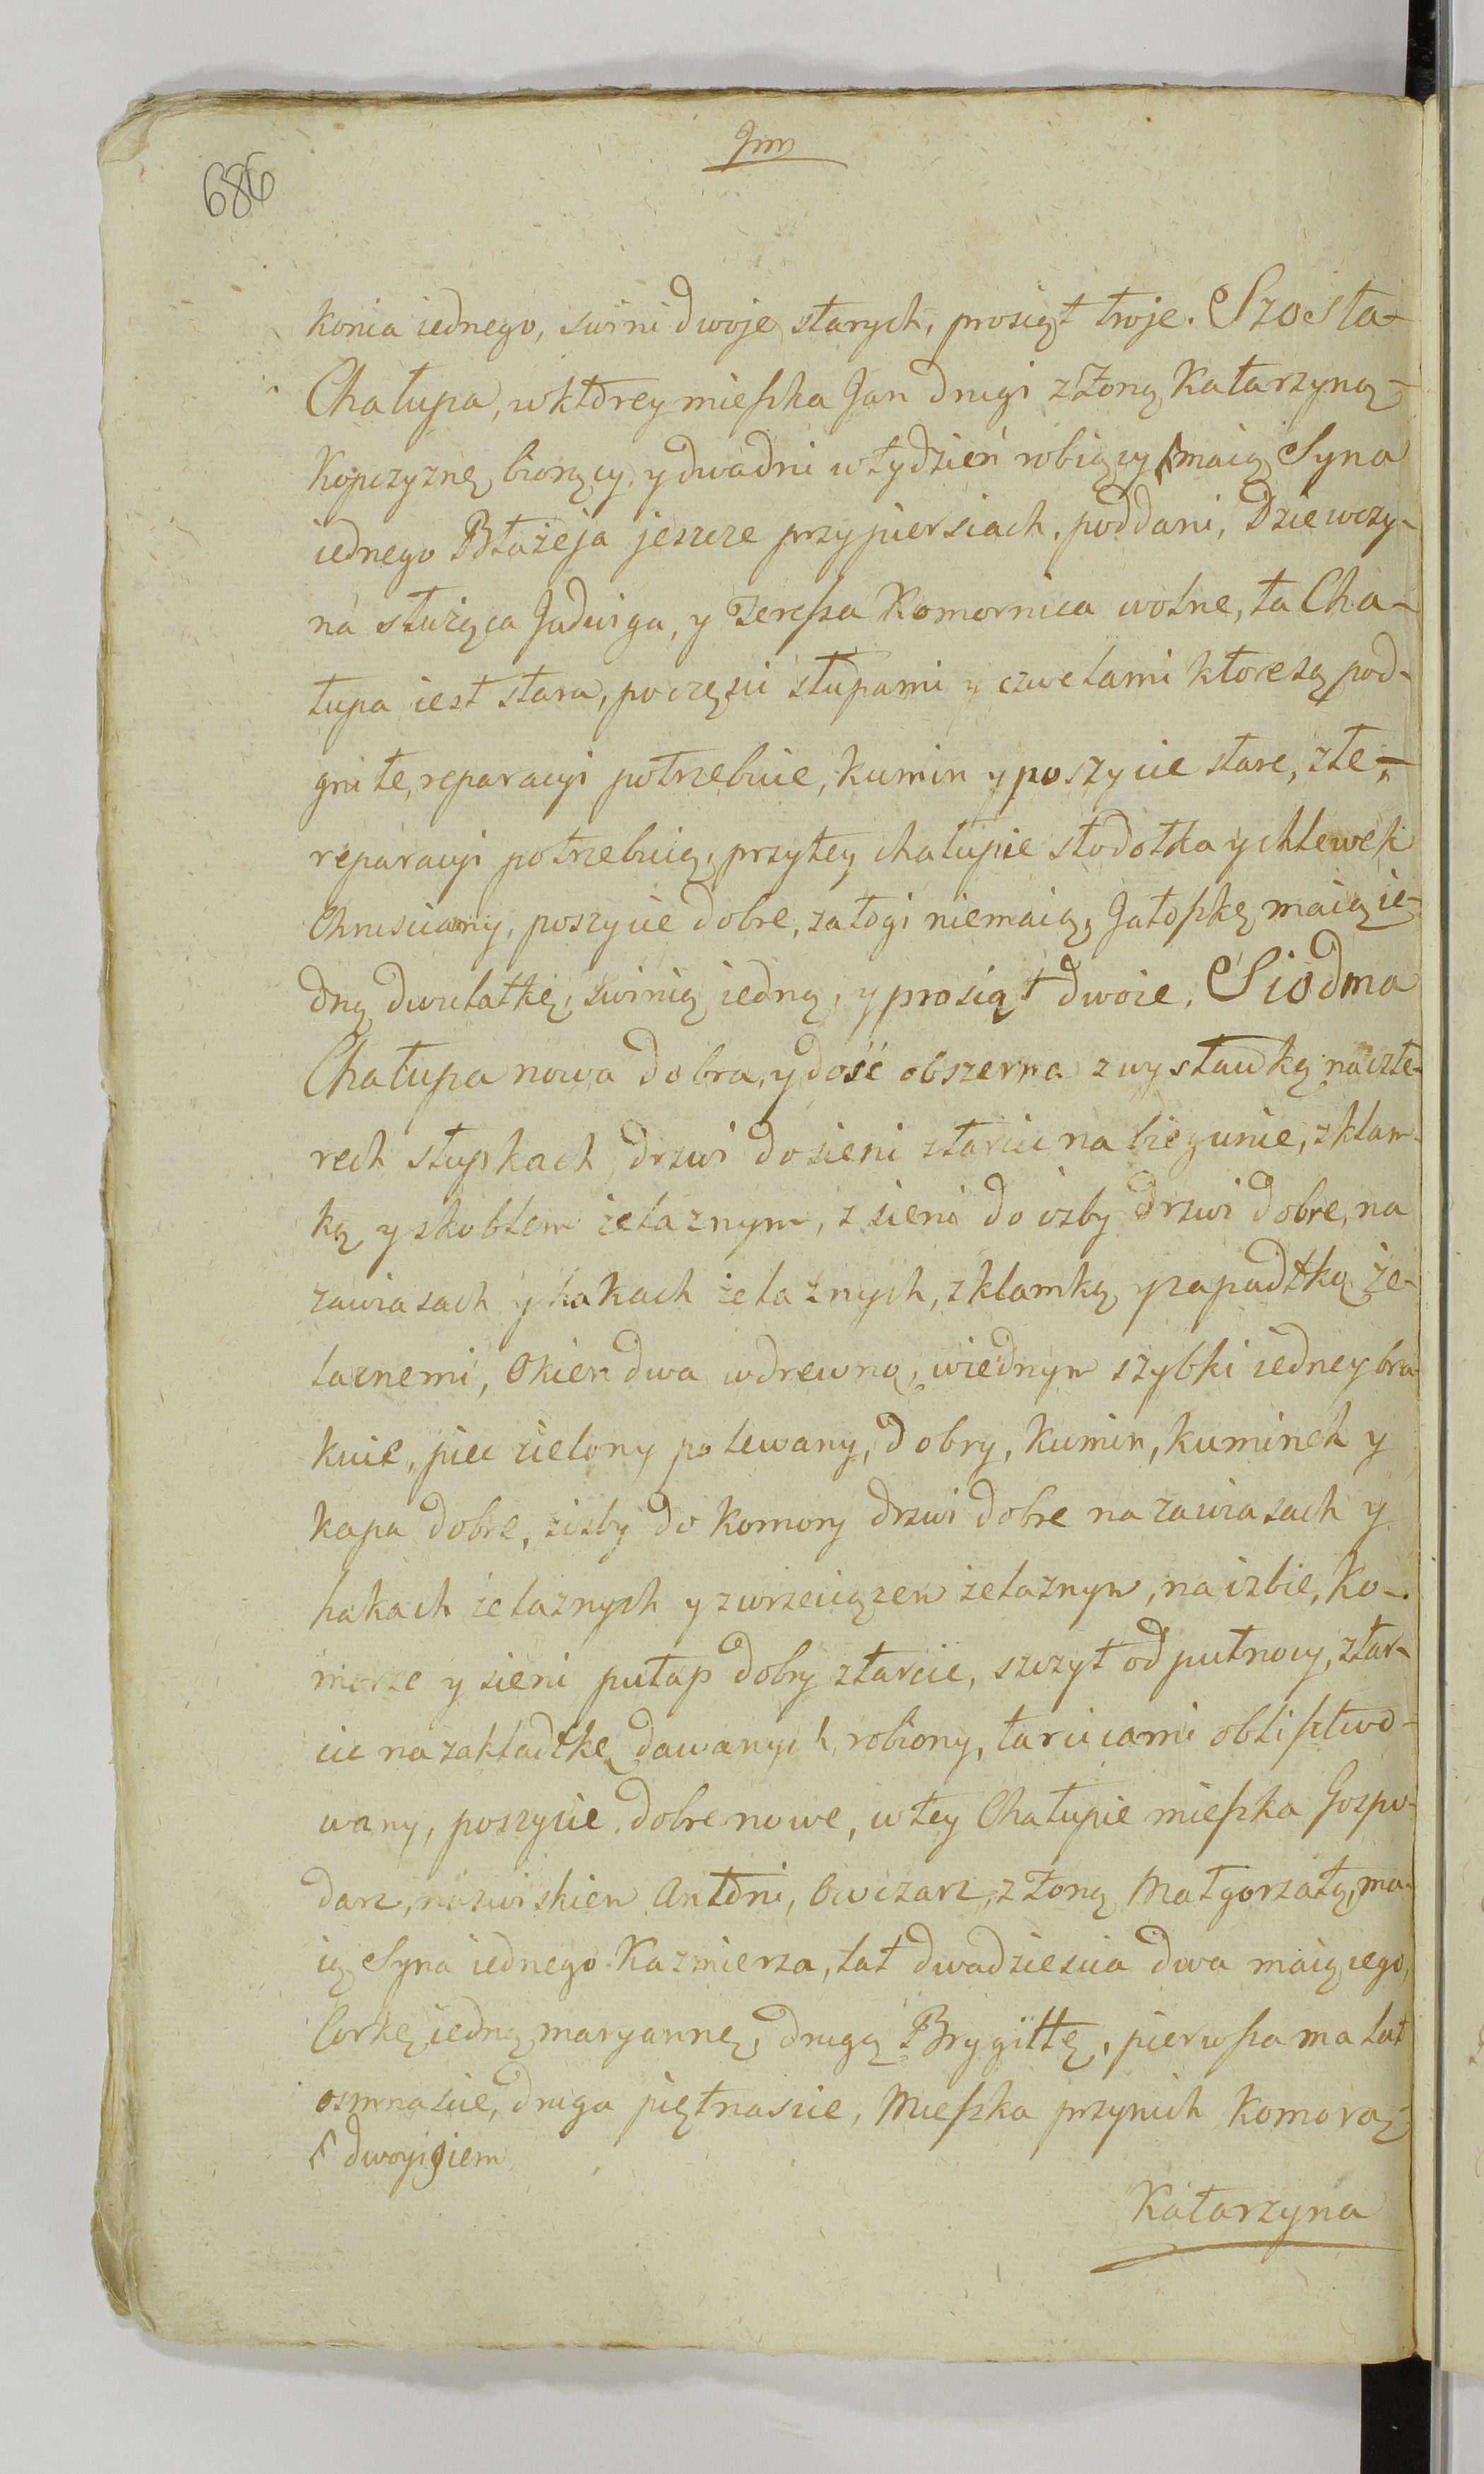 Jm
686
konia iednego, swini dwoje starych, prosiąt troje. Szosta
Chałupa, wktorey mieszka Jan drugi zżoną Katarzyną
Kopczyznę biorący, y dwadni wtydzień robiący ꟾmaią Syna
iednego Błażeja jeszcze przypiersiach, poddani, Dziewczy-
na służąca Jadwiga, y Teressa Komornica wolne, ta Cha-
łupa iest stara, poczęsci słupami y czwelami ktore są pod-
gniłe, reparacyi potrzebuie, kumin y poszycie stare, złe,
reparacyi potrzebuią, przytey chałupie stodołka y chlewek
Chrusciany, poszycie dobre, załogi niemaią, Jałoszkę maią ie-
dną dwulatkę, swinią iedną, y prosiąt dwoie, Siodma
Chałupa nowa dobra, y dość obszerna z wystawką naczte-
rech słupkach, drzwi do sieni ztarcic na biegunie, z klam-
ką y skoblem żelaznym, z sieni do izby drzwi dobre, na
zawiasach y hakach żelaznych, z klamką y zapadłką że-
laznemi, Okien dwa wdrewno, wiednym szybki iedney bra-
kuie, piec zielony polewany, dobry, kumin, kuminek y
kapa dobre, zizby do komory drzwi dobre na zawiasach y
hakach żelaznych y zwrzeciązem żelaznym, na izbie, Ko-
morze y sieni pułap dobry ztarcic, szczyt od pułnocy, ztar-
cic na zakładkę dawanych, robiony, tarcicami oblisztwo-
wany, poszycie dobre nowe, wtey Chałupie mieszka Gospo-
darz, nazwiskiem Antoni, Owczarz, z żoną Małgorzatą, ma-
ią Syna iednego Kazmierza, lat dwadziescia dwa maiącego,
Corkę iedną maryannę, drugą Brygittę, pierwsza ma lat
osmnascie, druga piętnascie, Mieszka przynich Komorą
ꟾ dwoygiem
Katarzyna